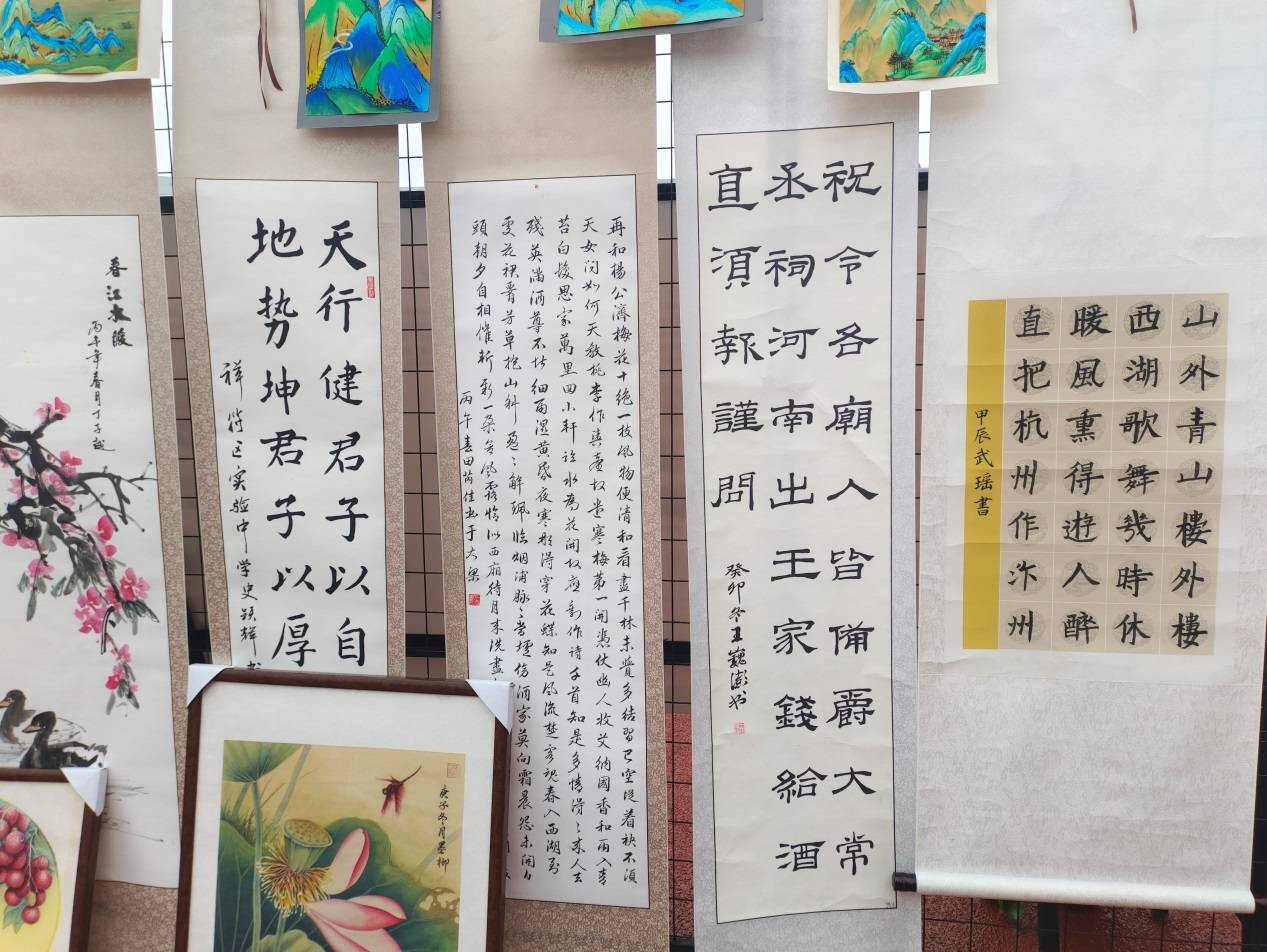 春江水暖
丙午年春月
天行健君子以自
地势坤君子以厚
祥符区实验中学史颖辉书
再和楊公濟梅花十绝一枝风物便清和看盡千林未覺多結習已空從着袂不須
天女问如何天教桃李作輿臺故遣寒梅第一開憑仗幽人收艾纳國香和雨入青
苔白髮思家萬里回小軒臨水為花開故應剩作诗千首知是多情得々来人去
殘英滿酒尊不堪細雨濕黄昏夜寒那得穿花蝶知是风流楚客魂春入西湖到
處花裙腰芳草抱山斜盈々解珮临烟浦脉々当壚傍酒家莫向霜晨怨未開白
頭朝夕自相催斬新一朵含风露恰似西廂待月来洗盡
丙午春田芮佳书于大梁
庚子冬月墨柳
祝令各廟人皆備爵大常
丞祠河南出王家錢給酒
直須報謹問
癸卯冬王巍澎书
山外青山樓外樓
西湖歌舞幾時休
暖風熏得遊人醉
直把杭州作汴州
甲辰武瑶書